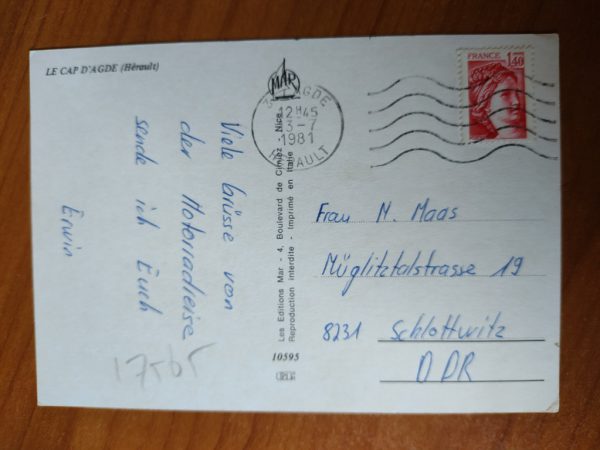 LE CAP D'AGDE (Hérault)
MAR
AGDE
12H45
3-7
1981
HERAULT
FRANCE
1,40
Viele Grüsse von
der Motorradreise
sende ich Euch
Erwin
17565
Les Editions Mar - 4, Boulevard de Cimiez - Nice
Reproduction interdite - Imprimé en Italie
10595
Frau M. Maas
Müglitztalstrasse 19
8231 Schlottwitz
DDR